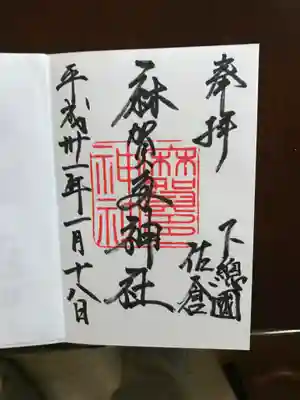 奉拝
下總國
佐倉
麻賀多神社
平成卅一年一月十八日
麻賀多
神社